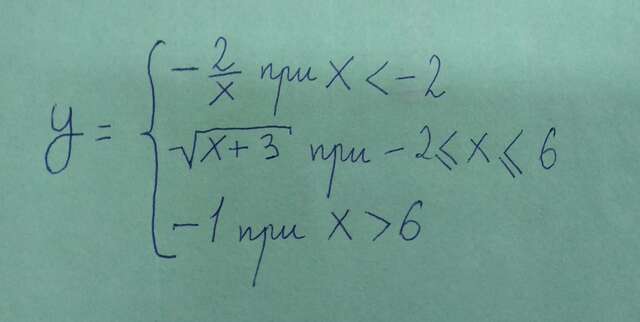 y = { -2/x при x < -2
√(x+3) при -2 ⩽ x ⩽ 6
-1 при x > 6